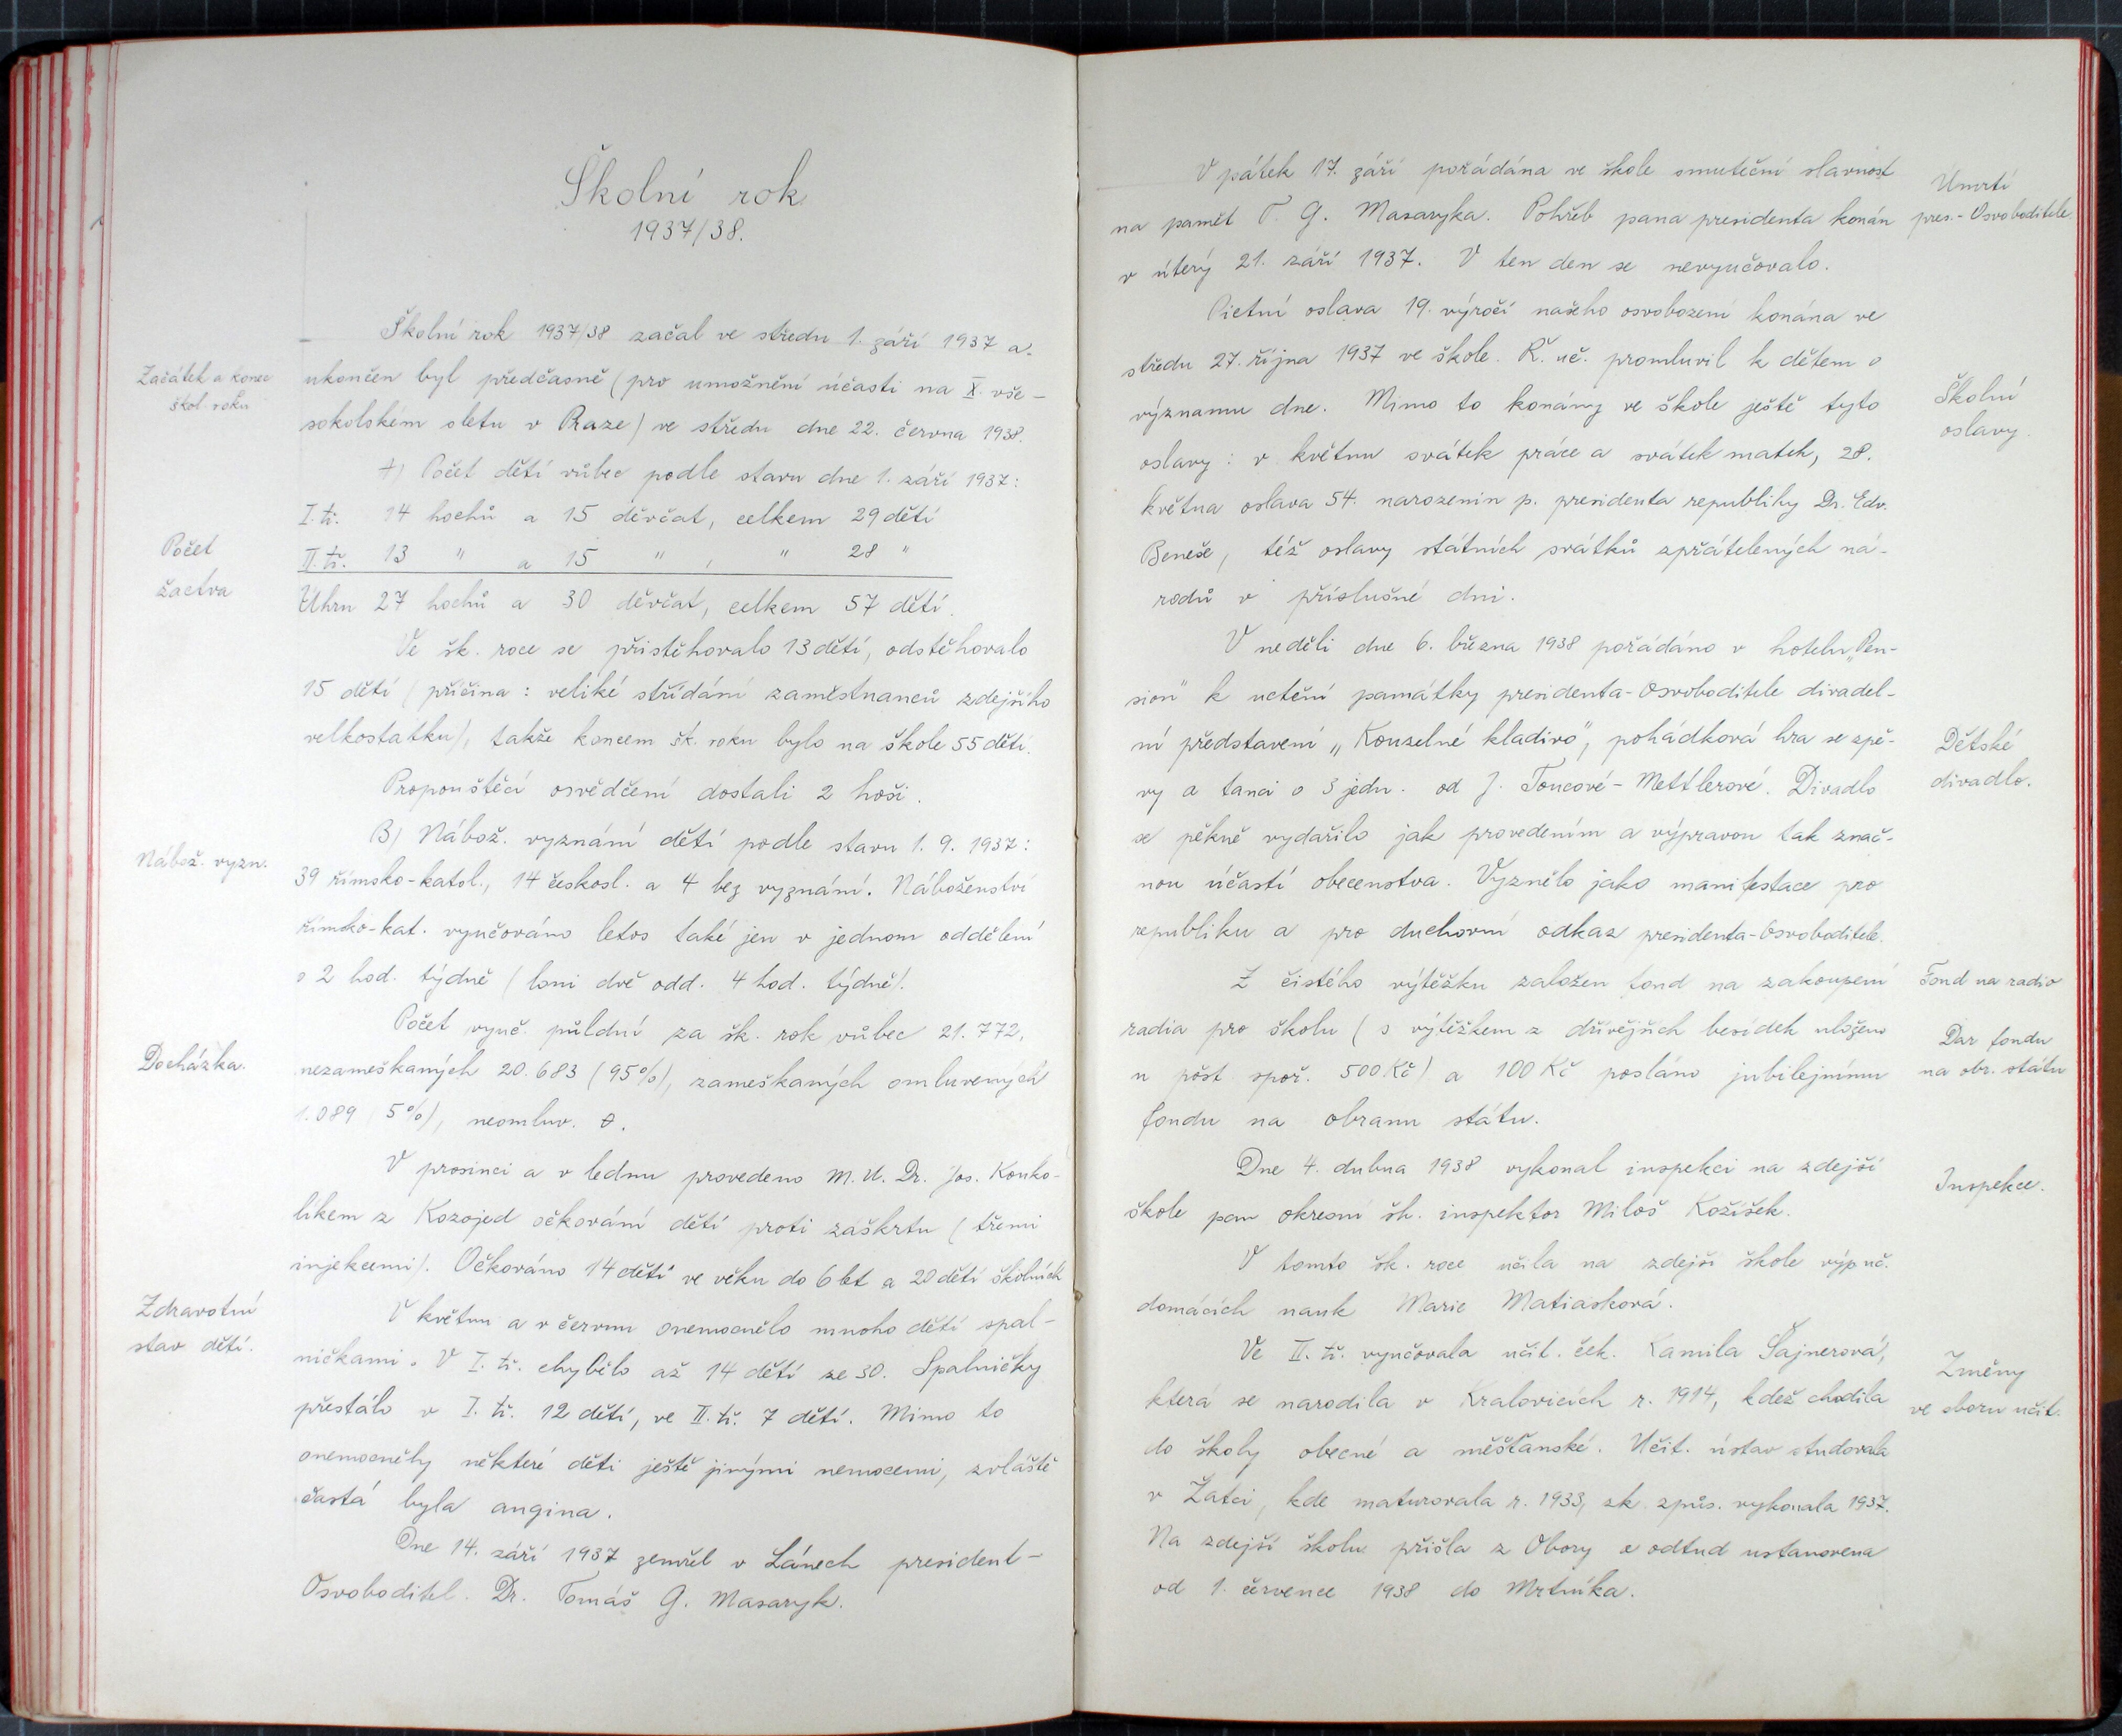 Školní rok
1937/38.
Školní rok 1937/38 začal ve středu 1. září 1937 a
Začátek a konec
škol. roku
ukončen byl předčasně (pro umožnění účasti na X. vše-
sokolském sletu v Praze) ve středu dne 22. června 1938.
A) Počet dětí vůbec podle stavu dne 1. září 1937:
I. tř. 14 hochů a 15 děvčat, celkem 29 dětí
Počet
žactva
II. tř. 13 " a 15 " , " 28 "
Úhrn 27 hochů a 30 děvčat, celkem 57 dětí.
Ve šk. roce se přistěhovalo 13 dětí, odstěhovalo
15 dětí (příčina: veliké střídání zaměstnanců zdejšího
velkostatku), takže koncem šk. roku bylo na škole 55 dětí.
Propouštěcí osvědčení dostali 2 hoši.
B) Nábož. vyznání dětí podle stavu 1. 9. 1937:
Nábož. vyzn.
39 římsko-katol., 14 českosl. a 4 bez vyznání. Náboženství
římsko-kat. vyučováno letos také jen v jednom oddělení
o 2 hod. týdně (loni dvě odd. 4 hod. týdně).
Počet vyuč. půldní za šk. rok vůbec 21.772,
Docházka.
nezameškaných 20.683 (95%), zameškaných omluvených
1.089 (5%), neomluv. 0.
V prosinci a v lednu provedeno M. U. Dr. Jos. Konko-
líkem z Kozojed očkování dětí proti záškrtu (třemi
injekcemi). Očkováno 14 dětí ve věku do 6 let a 20 dětí školních
Zdravotní
stav dětí.
V květnu a v červnu onemocnělo mnoho dětí spal-
ničkami. V I. tř. chybělo až 14 dětí ze 30. Spalničky
přestálo v I. tř. 12 dětí, ve II. tř. 7 dětí. Mimo to
onemocněly některé děti ještě jinými nemocemi, zvláště
častá byla angina.
Dne 14. září 1937 zemřel v Lánech president-
Osvoboditel Dr. Tomáš G. Masaryk.
V pátek 17. září pořádána ve škole smuteční slavnost
Úmrtí
pres.-Osvoboditele
na paměť T. G. Masaryka. Pohřeb pana presidenta konán
v úterý 21. září 1937. V ten den se nevyučovalo.
Pietní oslava 19. výročí našeho osvobození konána ve
středu 27. října 1937 ve škole. Ř. uč. promluvil k dětem o
významu dne. Mimo to konány ve škole ještě tyto
Školní
oslavy.
oslavy: v květnu svátek práce a svátek matek, 28.
května oslava 54. narozenin p. presidenta republiky Dr. Edv.
Beneše, též oslavy státních svátků spřátelených ná-
rodů v příslušné dni.
V neděli dne 6. března 1938 pořádáno v hotelu „Pen-
sion" k uctění památky presidenta-Osvoboditele divadel-
ní představení „Kouzelné kladivo", pohádková hra se zpě-
Dětské
divadlo.
vy a tanci o 3 jedn. od J. Toucové-Mettlerové. Divadlo
se pěkně vydařilo jak provedením a výpravou tak znač-
nou účastí obecenstva. Vyznělo jako manifestace pro
republiku a pro duchovní odkaz presidenta-Osvoboditele.
Z čistého výtěžku založen fond na zakoupení
Fond na radio
radia pro školu (s výtěžkem z dřívějších besídek uloženo
Dar fondu
na obr. státu
u pošt. spoř. 500 Kč) a 100 Kč posláno jubilejnímu
fondu na obranu státu.
Dne 4. dubna 1938 vykonal inspekci na zdejší
Inspekce.
škole pan okresní šk. inspektor Miloš Kožíšek.
V tomto šk. roce učila na zdejší škole výp. uč.
domácích nauk Marie Matiasková.
Ve II. tř. vyučovala učit. ček. Kamila Šajnerová,
Změny
ve sboru učit.
která se narodila v Kralovicích r. 1914, kdež chodila
do školy obecné a měšťanské. Učit. ústav studovala
v Žatci, kde maturovala r. 1933, zk. způs. vykonala 1937.
Na zdejší školu přišla z Obory a odtud ustanovena
od 1. července 1938 do Mrtníka.